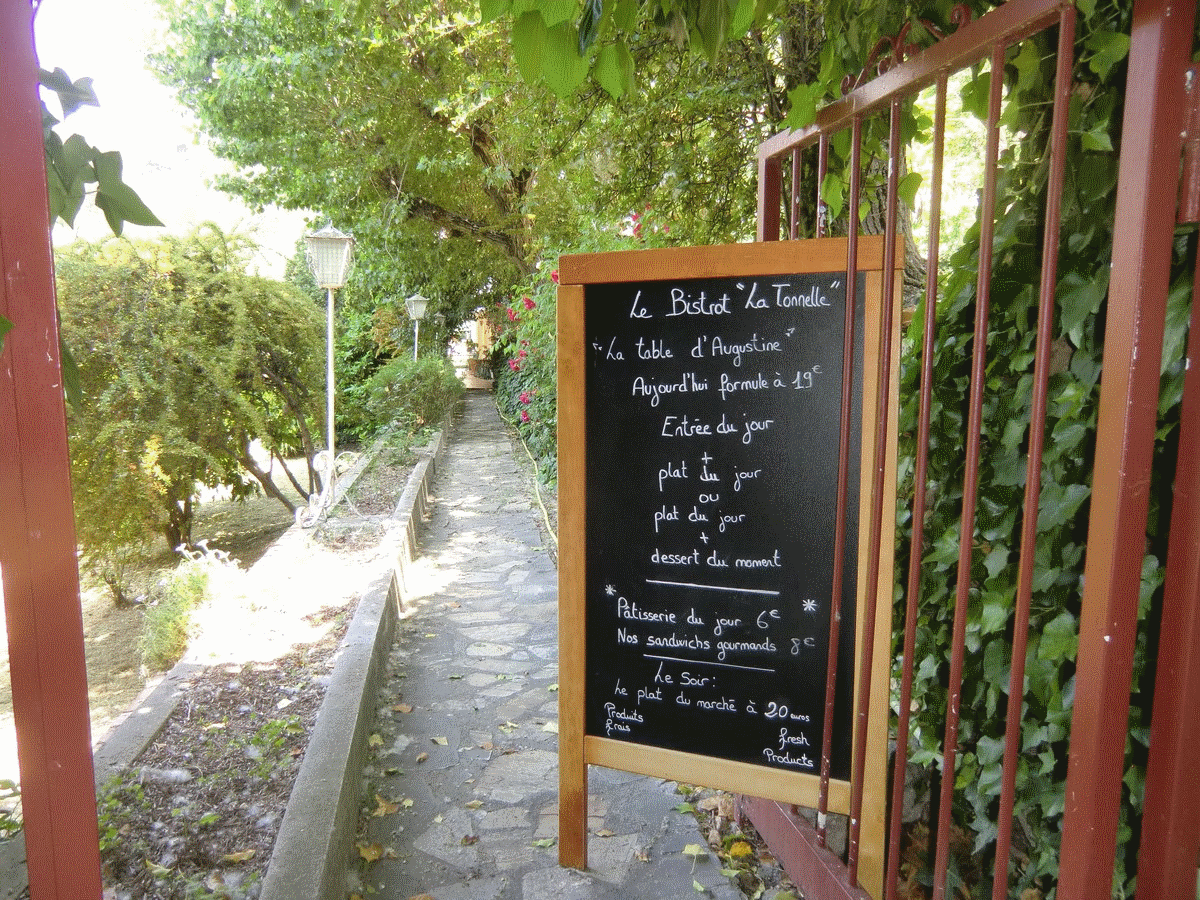 Le Bistrot "La Tonnelle"
"La table d'Augustine"
Aujourd'hui formule à 19€
Entrée du jour
+
plat du jour
ou
plat du jour
+
dessert du moment
* Pâtisserie du jour 6€ *
Nos sandwichs gourmands 8€
Le Soir:
Le plat du marché à 20 euros
Produits
frais
fresh
Products